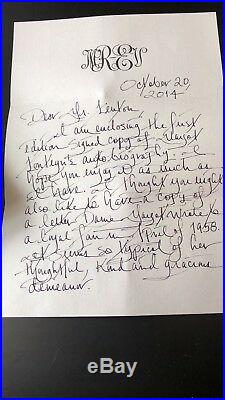 October 20,
2014
Dear Mr. Fenton,
I am enclosing the first
edition signed copy of Margot
Fonteyn's autobiography. I
hope you enjoy it as much as
I have. I thought you might
also like to have a copy of
a letter Dame Margot wrote to
a loyal fan in April of 1958.
It seems so typical of her
thoughtful, kind and gracious
demeanor.